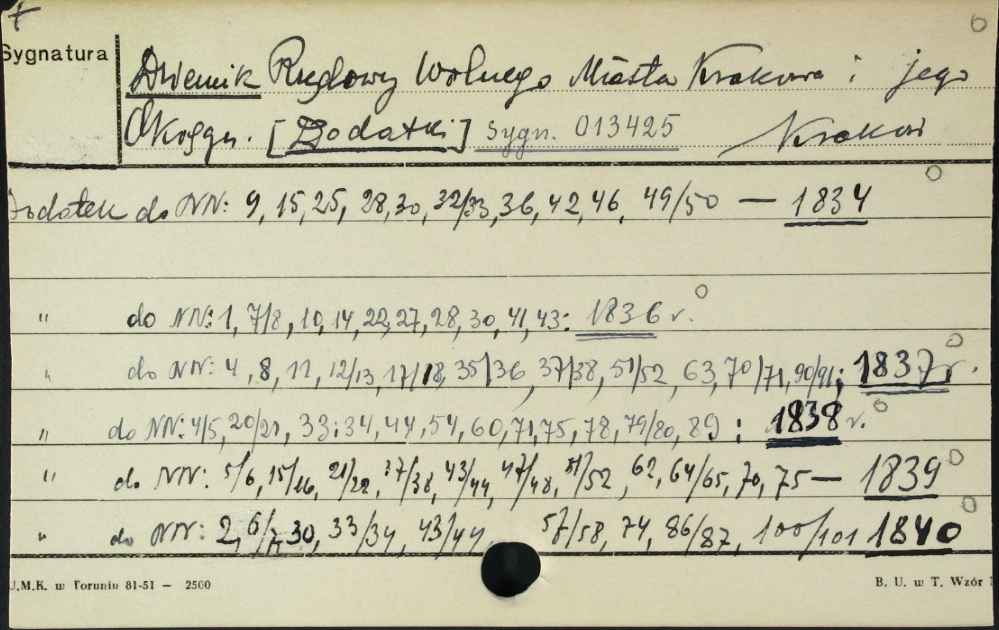 Sygnatura
Dziennik Rządowy Wolnego Miasta Krakowa i jego
Okręgu. [Dodatki] Sygn. 013425 Kraków
Dodatek do NN: 9, 15, 25, 28, 30, 32/33, 36, 42, 46, 49/50 — 1834
" do NN: 1, 7/8, 10, 14, 22, 27, 28, 30, 41, 43: 1836 r.
" do NN: 4, 8, 11, 12/13, 17/18, 35/36, 37/38, 51/52, 63, 70/71, 90/91; 1837 r.
" do NN: 4/5, 20/21, 33:34, 44, 54, 60, 71, 75, 78, 79/80, 89: 1838 r.
" do NN: 5/6, 15/16, 21/22, 37/38, 43/44, 47/48, 51/52, 62, 64/65, 70, 75 — 1839
" do NN: 2, 6/7, 30, 33/34, 43/44, 57/58, 74, 86/87, 100/101 1840
U.M.K. w Toruniu 81-51 — 2500
B. U. w T. Wzór